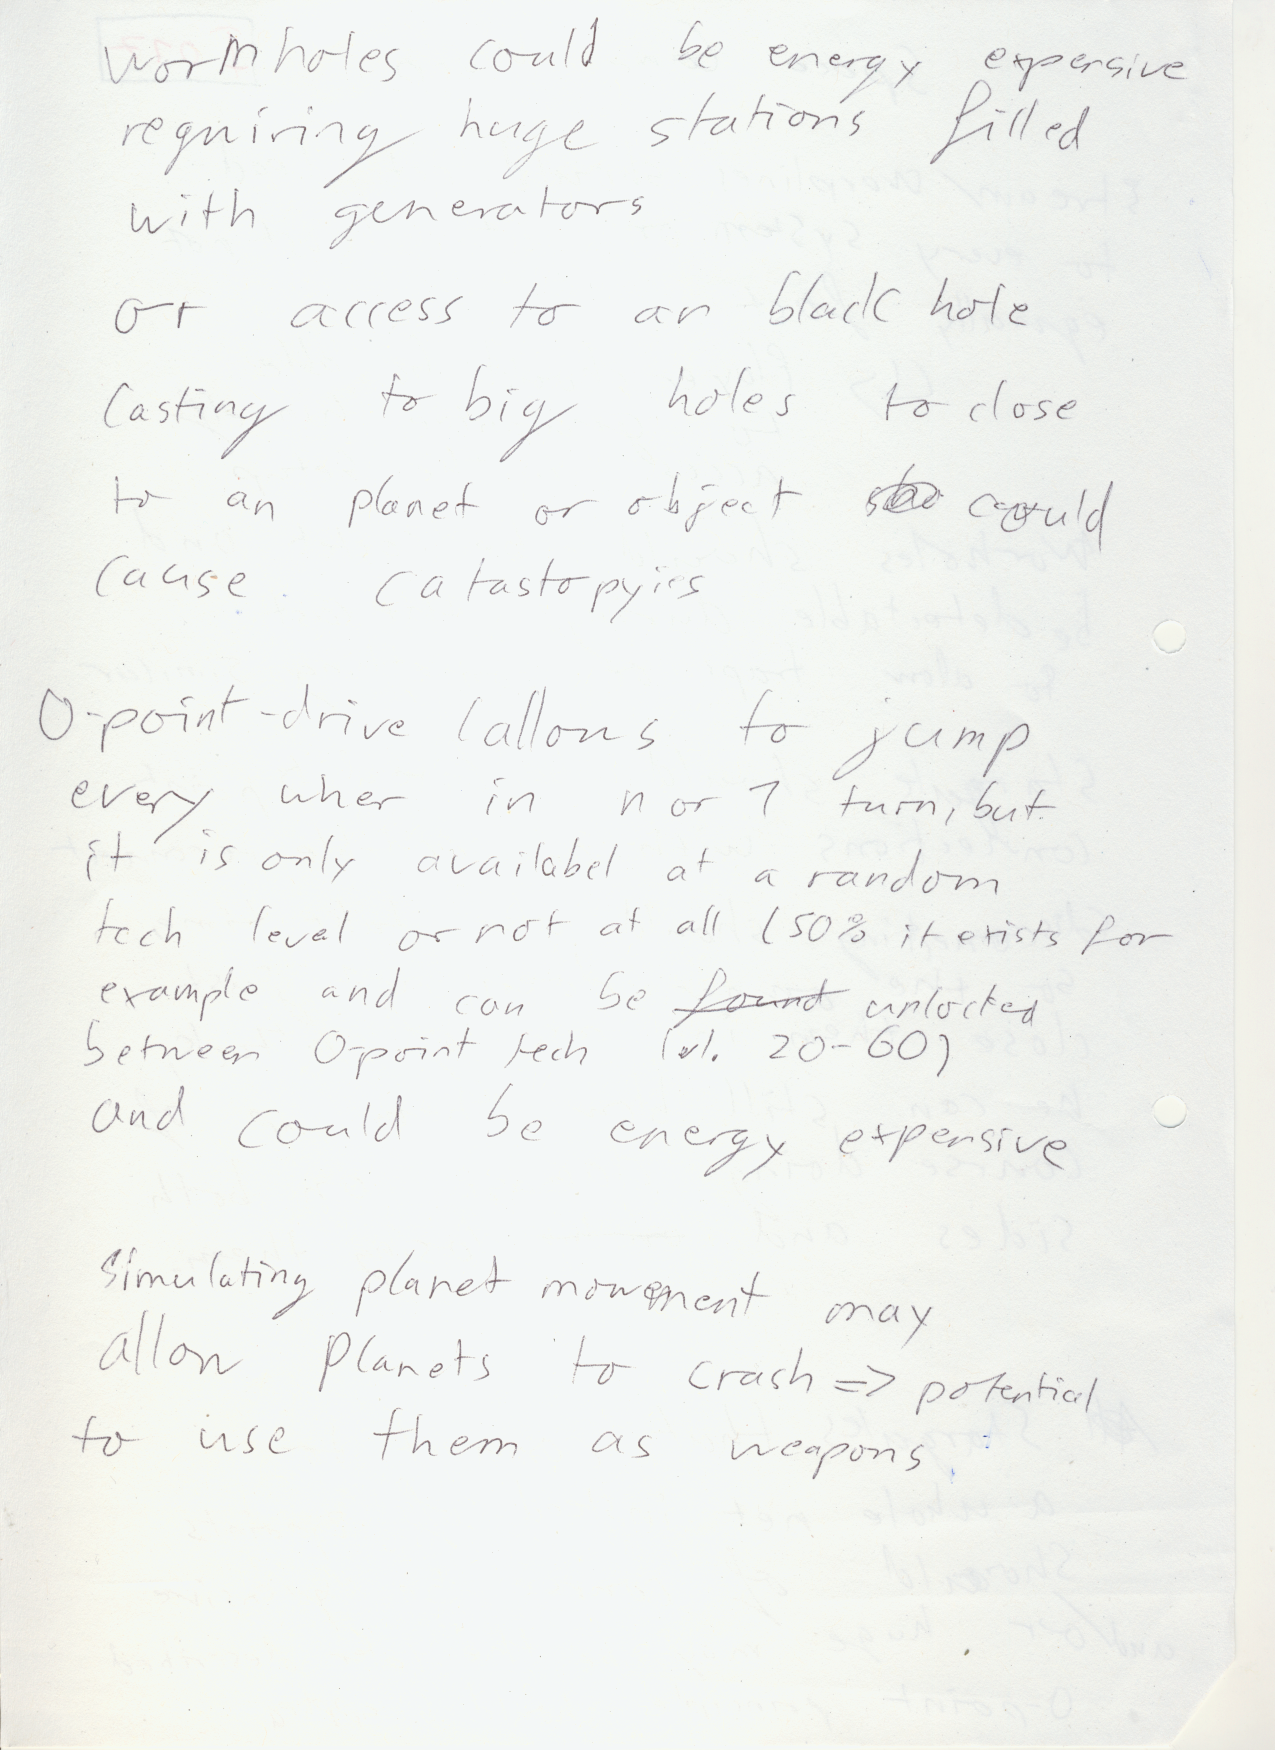 wormholes could be energy expensive
requiring huge stations filled
with generators
or access to an black hole
Casting to big holes to close
to an planet or object could
cause catastopyies
0-point-drive (allows to jump
every wher in n or 1 turn, but
it is only availabel at a random
tech level or not at all (50% it exists for
example and can be found unlocked
between 0-point tech lvl. 20-60)
and could be energy expensive
Simulating planet movement may
allow planets to crash => potential
to use them as weapons